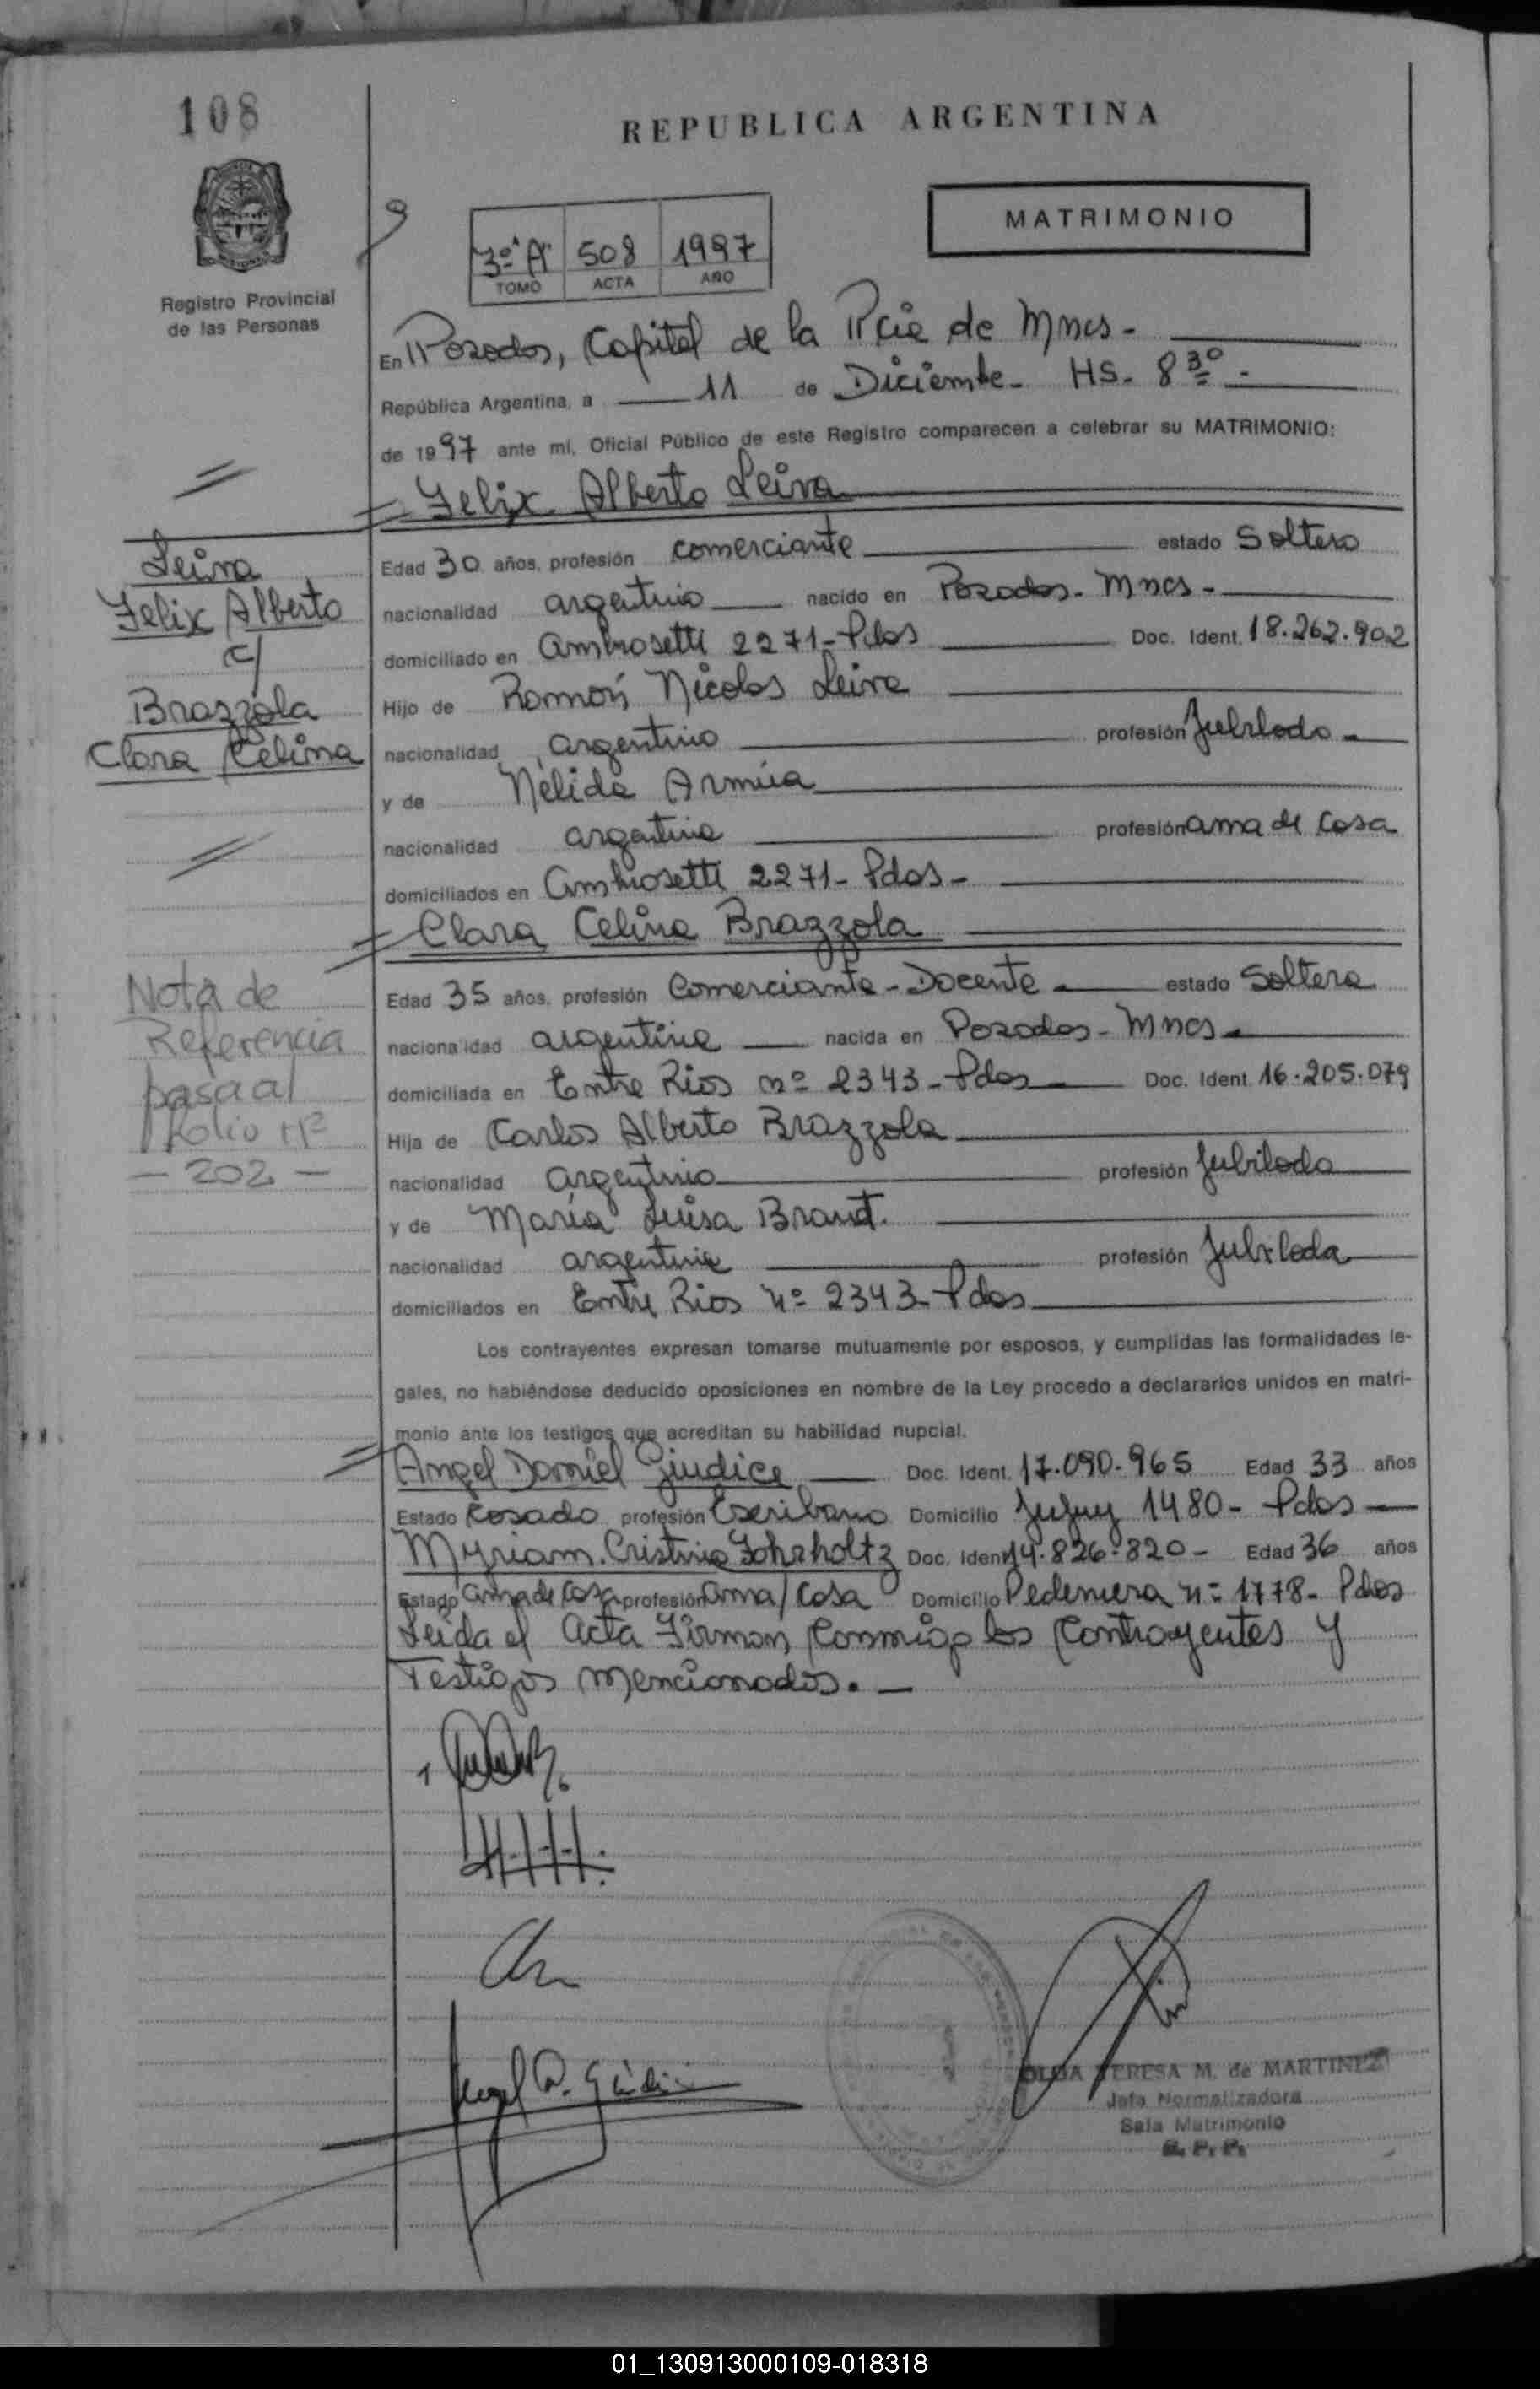 108
REPUBLICA ARGENTINA
MATRIMONIO
3º "A" 508 1997
TOMO ACTA AÑO
Registro Provincial
de las Personas
En Posadas, Capital de la Pcia de Mnes-
República Argentina, a 11 de Diciembre- HS- 8 30-
de 1997 ante mi, Oficial Público de este Registro comparecen a celebrar su MATRIMONIO:
Felix Alberto Leiva
Edad 30 años, profesión comerciante estado Soltero
nacionalidad argentino nacido en Posadas- Mnes-
domiciliado en Ambrosetti 2271- Pdas Doc. Ident. 18.262.902
Hijo de Ramón Nicolas Leiva
nacionalidad argentino profesión Jubilado-
y de Nélida Armúa
nacionalidad argentina profesión ama de casa
domiciliados en Ambrosetti 2271- Pdas-
Clara Celina Brazzola
Edad 35 años, profesión Comerciante-Docente- estado Soltera
nacionalidad argentina nacida en Posadas- Mnes-
domiciliada en Entre Rios nº 2343- Pdas Doc. Ident. 16.205.079
Hija de Carlos Alberto Brazzola
nacionalidad argentino profesión Jubilado
y de María Luisa Brand.
nacionalidad argentina profesión Jubilada
domiciliados en Entre Rios nº 2343- Pdas
Los contrayentes expresan tomarse mutuamente por esposos, y cumplidas las formalidades le-
gales, no habiéndose deducido oposiciones en nombre de la Ley procedo a declararlos unidos en matri-
monio ante los testigos que acreditan su habilidad nupcial.
Angel Daniel Giudice Doc. Ident. 17.090.965 Edad 33 años
Estado Casado profesión Escribano Domicilio Jujuy 1480- Pdas
Myriam Cristina Fohrholtz Doc. Ident 14.826.820- Edad 36 años
Estado ama de casa profesión ama/casa Domicilio Pedernera nº 1778- Pdas
Leida el Acta Firman Conmigo los Contrayentes y
Testigos mencionados.-
Leiva
Felix Alberto
c/
Brazzola
Clara Celina
Nota de
Referencia
pasa al
folio Nº
- 202 -
Angel D. Giudice
OLGA TERESA M. de MARTINEZ
Jefa Normalizadora
Sala Matrimonio
R. P. P.
01_130913000109-018318